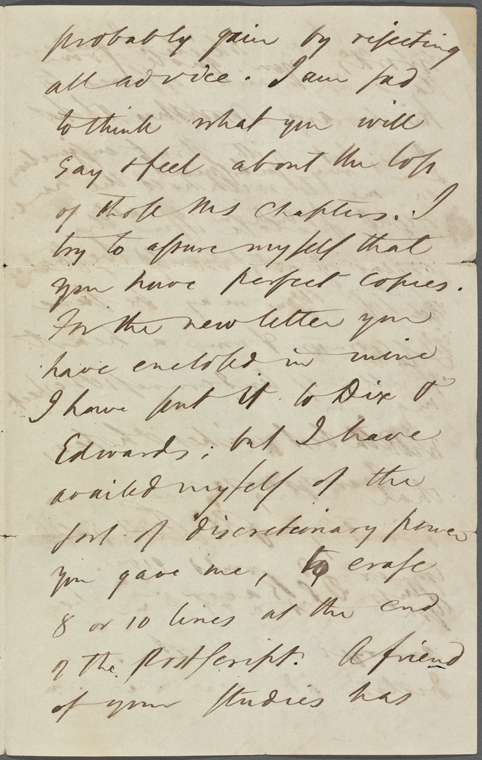 probably gain by rejecting
all advice. I am sad
to think what you will
say & feel about the loss
of those MS chapters. I
try to assure myself that
you have perfect copies.
For the new letter you
have enclosed in mine
I have sent it to Dix &
Edwards; but I have
availed myself of the
sort of discretionary power
you gave me, to erase
8 or 10 lines at the end
of the PostScript. A friend
of your studies has